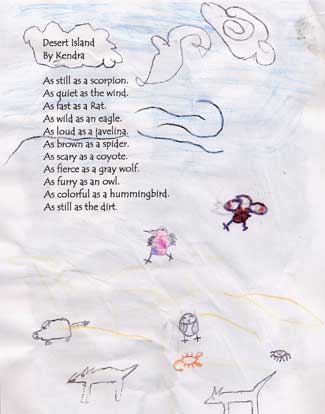 Desert Island
By Kendra
As still as a scorpion.
As quiet as the wind.
As fast as a Rat.
As wild as an eagle.
As loud as a javelina.
As brown as a spider.
As scary as a coyote.
As fierce as a gray wolf.
As furry as an owl.
As colorful as a hummingbird.
As still as the dirt.